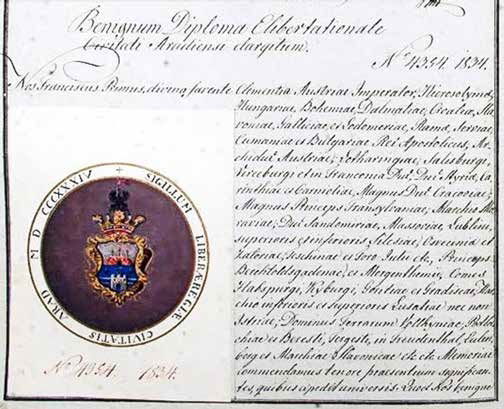 Benignum Diploma Elibertationale
Civitati Aradiensi elargitum.
Nº 4354. 1834.
Nos Franciscus Primus, divina favente Clementia Austriae Imperator, Hierosolymae,
Hungariae, Bohemiae, Dalmatiae, Croatiae, Sla-
voniae, Galliciae, et Lodomeriae, Ramae, Serviae
Cumaniae et Bulgariae Rex Apostolicus, Ar-
chidux Austriae, Lotharingiae, Salisburgi,
Virceburgi et in Franconia Dux, Dux Styriae, Ca-
rinthiae et Carnioliae, Magnus Dux Cracoviae,
Magnus Princeps Transylvaniae, Marchio Mo-
raviae, Dux Sandomiriae, Massoviae, Lublini,
superioris et inferioris Silesiae,
Zatoriae, Teschinae et Foro Julii etc, Princeps
Berchtolsgadenae, et Mergenthemii, Comes
Habspurgi, Kyburgi, Goritiae et Gradiscae, Mar-
chio inferioris et superioris Lusatiae nec non
Istriae, Dominus Terrarum Volhyniae,
et Marchiae Slavonicae etc etc Memoriae
commendamus tenore praesentium significan-
tes, quibus expedit universis: Quod Nos benigne
SIGILLUM LIBERÆ REGIÆ CIVITATIS ARAD M D CCCXXXIV
Nº. 4354. 1834.